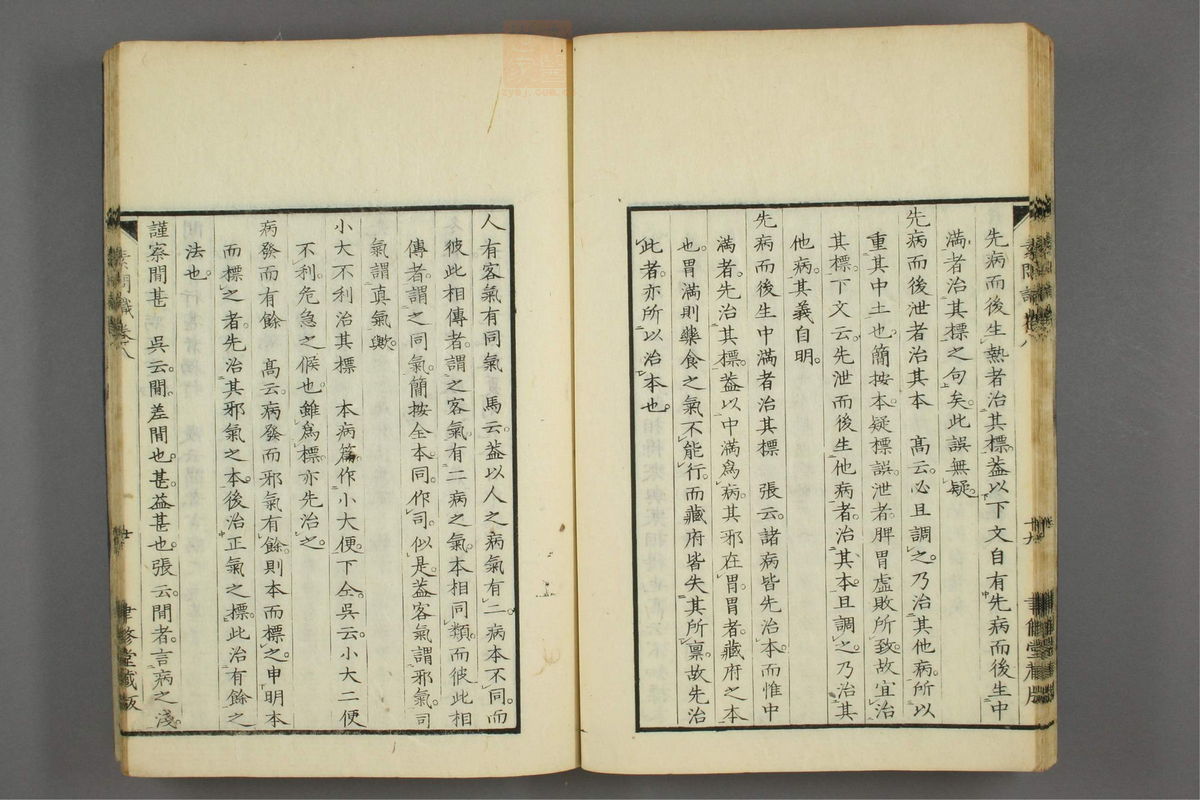 先病而後生熱者治其標蓋以下文自有先病而後生中
滿者治其標之句矣此誤無疑
先病而後泄者治其本 髙云必且調之乃治其他病所以
重其中土也簡按本疑標誤泄者脾胃虛敗所致故宜治
其標下文云先泄而後生他病者治其本且調之乃治其
他病其義自明
先病而後生中滿者治其標 張云諸病皆先治本而惟中
滿者先治其標蓋以中滿爲病其邪在胃胃者藏府之本
也胃滿則藥食之氣不能行而藏府皆失其所禀故先治
此者亦所以治本也
人有客氣有同氣 馬云蓋以人之病氣有二病本不同而
彼此相傳者謂之客氣有二病之氣本相同類而彼此相
傳者謂之同氣簡按全本同作司似是蓋客氣謂邪氣司
氣謂真氣歟
小大不利治其標 本病篇作小大便下仝吳云小大二便
不利危急之候也雖爲標亦先治之
病發而有餘 髙云病發而邪氣有餘則本而標之申明本
而標之者先治其邪氣之本後治正氣之標此治有餘之
法也
謹察閒甚 吳云閒差閒也甚益甚也張云閒者言病之淺
素問識卷八
廿
聿修堂藏板